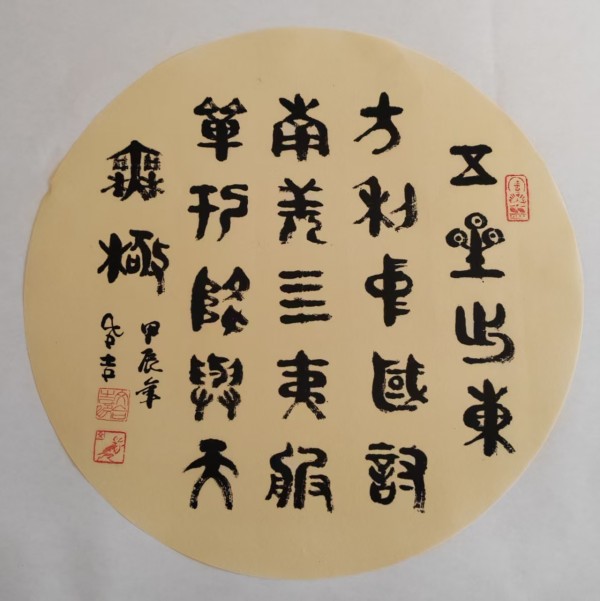 五星出東
方利中國討
南羌四夷服
單于降與天
無極
甲辰年